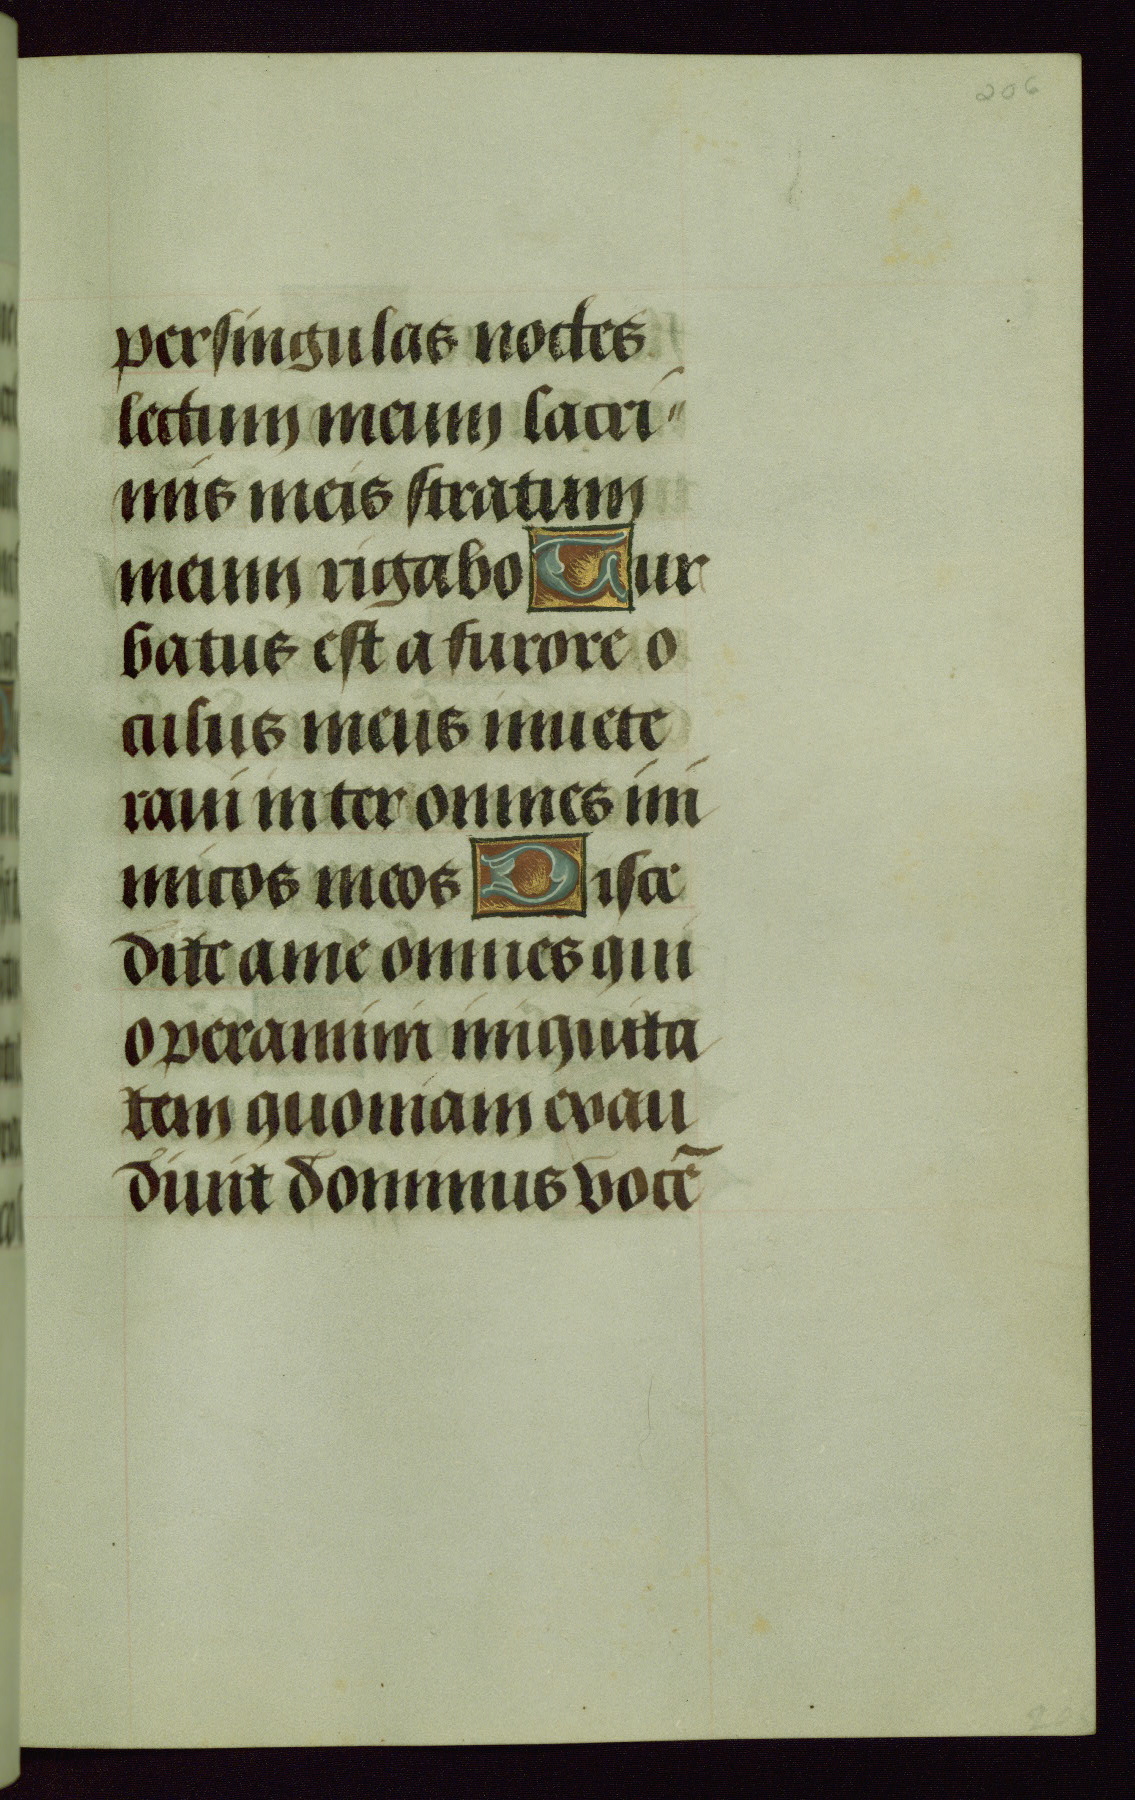 206
persingulas noctes
lectum meum lacri〃
mis meis stratum
meum rigabo Tur
batus est a furore o
culus meus inuete
raui inter omnes ini
micos meos Disce
dite ame omnes qui
operamini iniquita
tem quoniam exau
diuit dominus vocē